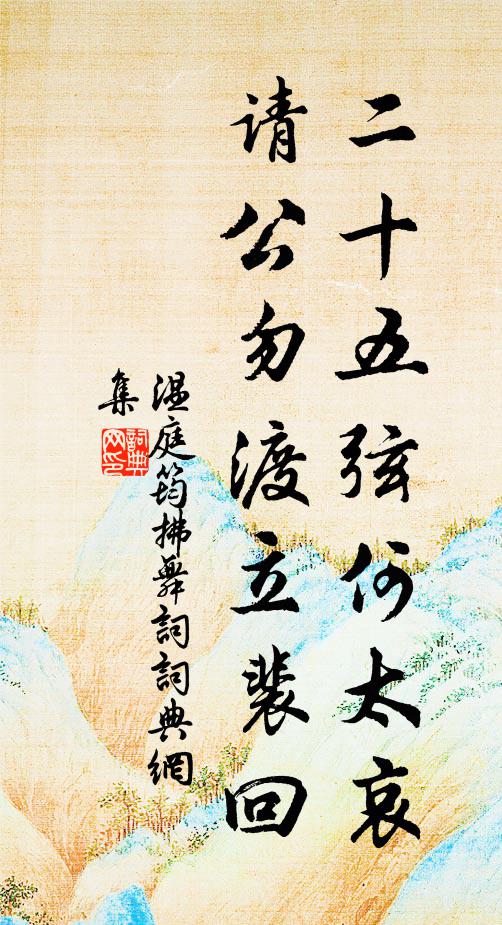 二十五弦何太哀
请公勿渡立裴回
温庭筠拂舞詞詞典網
集
詞典
网印